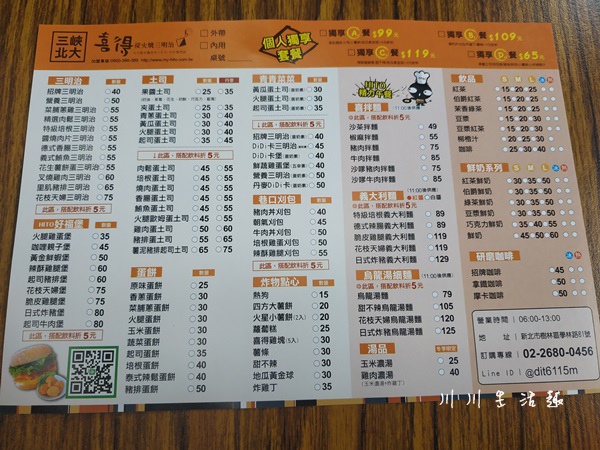 三峽北大
喜得 炭火燒三明治
□外帶
□內用
桌號
個人獨享套餐
□獨享A餐$99元
□獨享B餐$109元
□獨享C餐$119元
□獨享D餐$65元
三明治
招牌三明治 40
營養三明治 50
菜脯蔥蛋三明治 55
精選肉鬆三明治 55
特級培根三明治 55
醬燒肉片三明治 55
德式香腸三明治 55
義式鮪魚三明治 55
花生薯餅蛋三明治 60
叉燒雞肉三明治 60
里肌豬排三明治 65
花枝天婦三明治 75
此區,搭配飲料折5元
HITO好福堡
火腿雞蛋堡 35
咖哩親子堡 45
黃金鮮蝦堡 50
辣酥雞腿堡 60
起司豬排堡 60
花枝天婦堡 60
脆皮雞腿堡 75
日式炸豬堡 80
起司牛肉堡 80
此區,搭配飲料折5元
土司
果醬土司 25 35
夾蛋土司 30 35
青蔥蛋土司 30 40
黃瓜蛋土司 30 40
火腿蛋土司 35 40
起司蛋土司 35 40
↓此區,搭配飲料折5元
肉鬆蛋土司 45 55
培根蛋土司 45 55
燒肉蛋土司 45 55
香腸蛋土司 45 55
鮪魚蛋土司 45 55
火腿歐姆蛋土司 45 55
雞肉蛋土司 50 60
豬排蛋土司 55 65
薯泥豬排起司土司 65
蛋餅
原味蛋餅 25
香蔥蛋餅 30
菜脯蛋餅 30
火腿蛋餅 30
玉米蛋餅 30
蔬菜蛋餅 30
起司蛋餅 30
培根蛋餅 40
泰式辣鬆蛋餅 40
豬排蛋餅 50
青青菜菜
黃瓜蛋土司 30
火腿蛋土司 35
起司蛋土司 35
↓此區,搭配飲料折5元
招牌三明治 40
DiDi卡三明治 45
DiDi卡堡 45
鮮蔬雞蛋堡 50
營養三明治 50
丹麥DiDi卡 50
巷口刈包
豬肉丼刈包 40
朝氣刈包 45
牛肉丼刈包 50
培根雞蛋刈包 50
辣酥雞腿刈包 60
此區,搭配飲料折5元
炸物點心
熱狗 15
四方大薯餅 20
火星小薯餅(2入) 20
蘿蔔糕 25
喜得雞塊(5入) 30
薯條 30
甜不辣 30
地瓜黃金球 30
炸雞丁 35
HiTO精力午餐
喜拌麵
沙茶拌麵 49
椒麻拌麵 55
豬肉拌麵 75
牛肉拌麵 85
沙嗲豬肉拌麵 75
沙嗲牛肉拌麵 85
義大利麵
特級培根義大利麵 65
德式辣腸義大利麵 65
脆皮雞腿義大利麵 75
花枝天婦義大利麵 75
日式炸豬義大利麵 75
烏龍湯鐵麵
烏龍湯麵 75
甜不辣烏龍湯麵 105
花枝天婦烏龍湯麵 115
日式炸豬烏龍湯麵 115
湯品
玉米濃湯 25
雞肉濃湯 40
(玉米濃湯+炸雞丁)
飲品 S M L
紅茶 15 20 25
伯爵紅茶 15 20 25
茉香綠茶 15 20 25
豆漿 15 20 25
豆漿紅茶 15 20 25
柳橙汁 20 30
咖啡 25 50
鮮奶系列 S M L
紅茶鮮奶 30 35 50
伯爵鮮奶 30 35 50
綠茶鮮奶 30 35 50
豆漿鮮奶 30 35 50
巧克力鮮奶 35 45 55
鮮奶 35 45
研磨咖啡
招牌咖啡 45
拿鐵咖啡 50
摩卡咖啡 50
營業時間|06:00-13:00
地 址|新北市樹林區學林路81號
訂購專線|02-2680-0456
Line ID|@dit6115m
川川生活趣